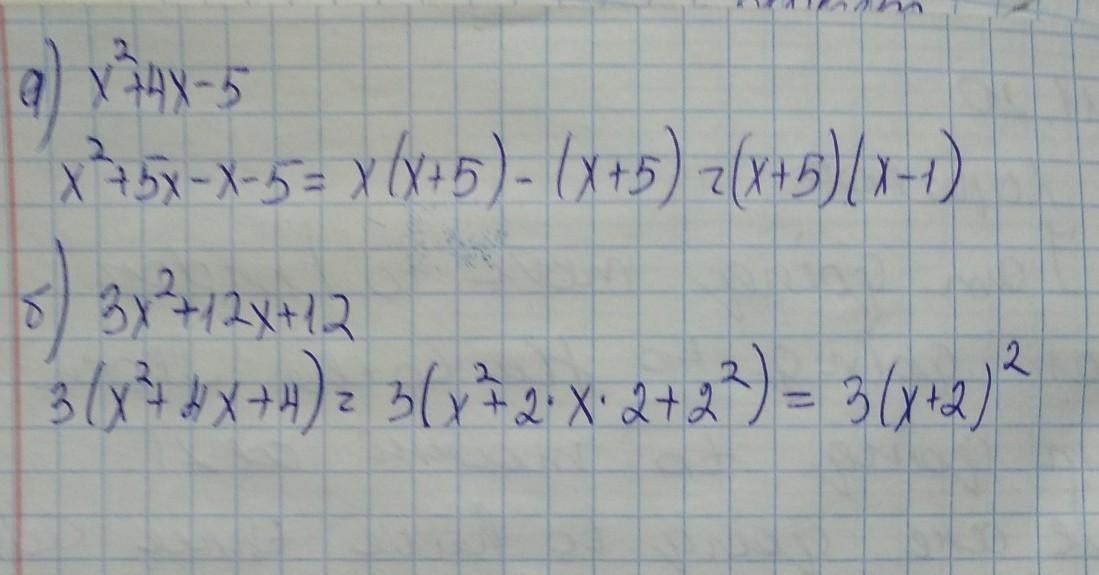 а) x²+4x-5
x²+5x-x-5= x(x+5)-(x+5)=(x+5)(x-1)
б) 3x²+12x+12
3(x²+4x+4)= 3(x²+2·x·2+2²)=3(x+2)²